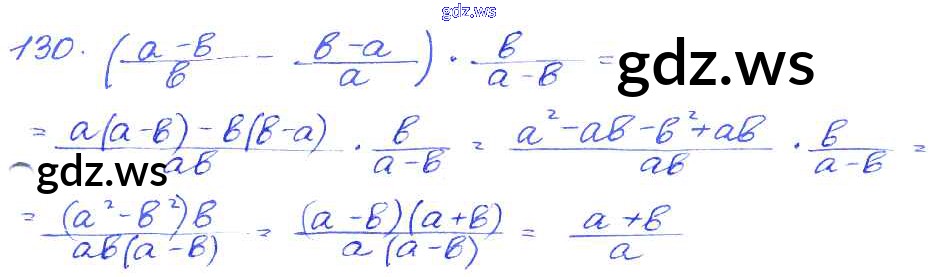 gdz.ws
130. ((a-в)/в - (в-а)/a) · в/(a-в) = gdz.ws
= (a(a-в)-в(в-a))/(aв) · в/(a-в) = (a²-aв-в²+aв)/(aв) · в/(a-в) =
gdz.ws
= ((a²-в²)в)/(aв(a-в)) = ((a-в)(a+в))/(a(a-в)) = (a+в)/a